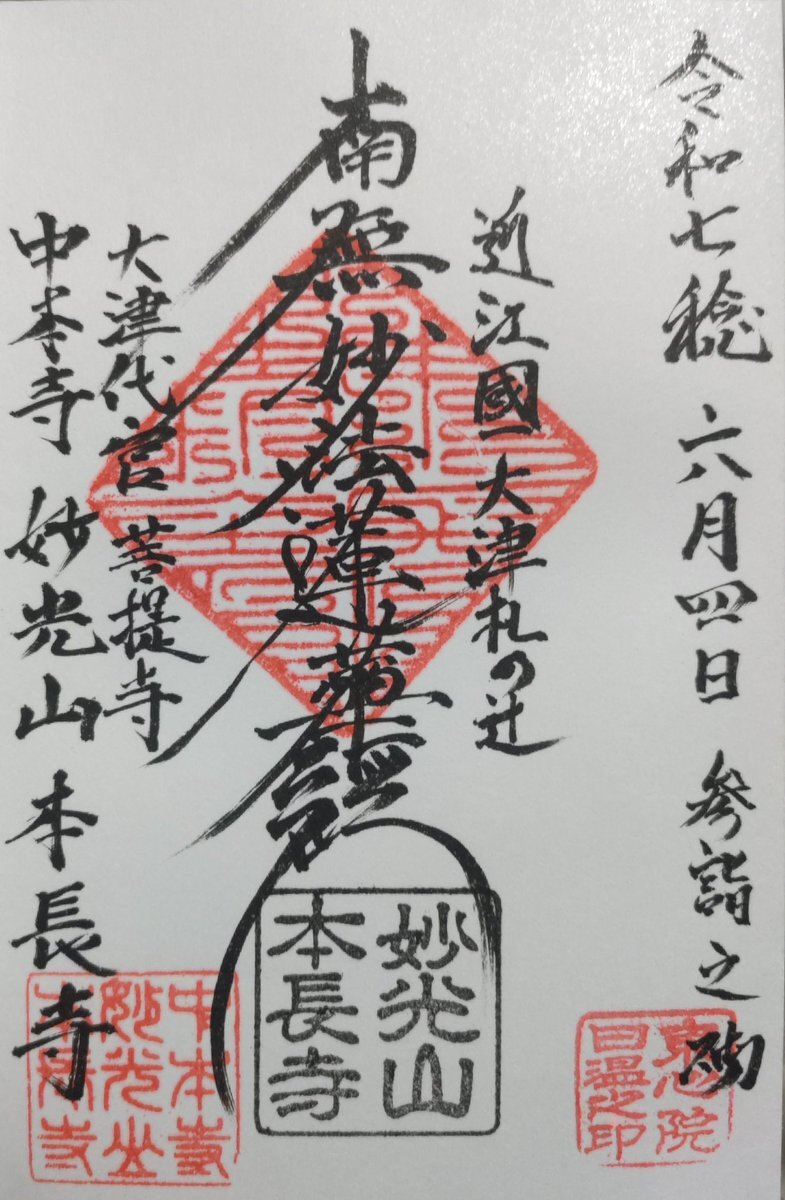 令和七稔 六月四日 参詣之砌
近江國大津札の辻
南無妙法蓮華経
大津代官 菩提寺
中本寺 妙光山 本長寺
妙光山
本長寺
中本寺
妙光山
本長寺
院
日温之印